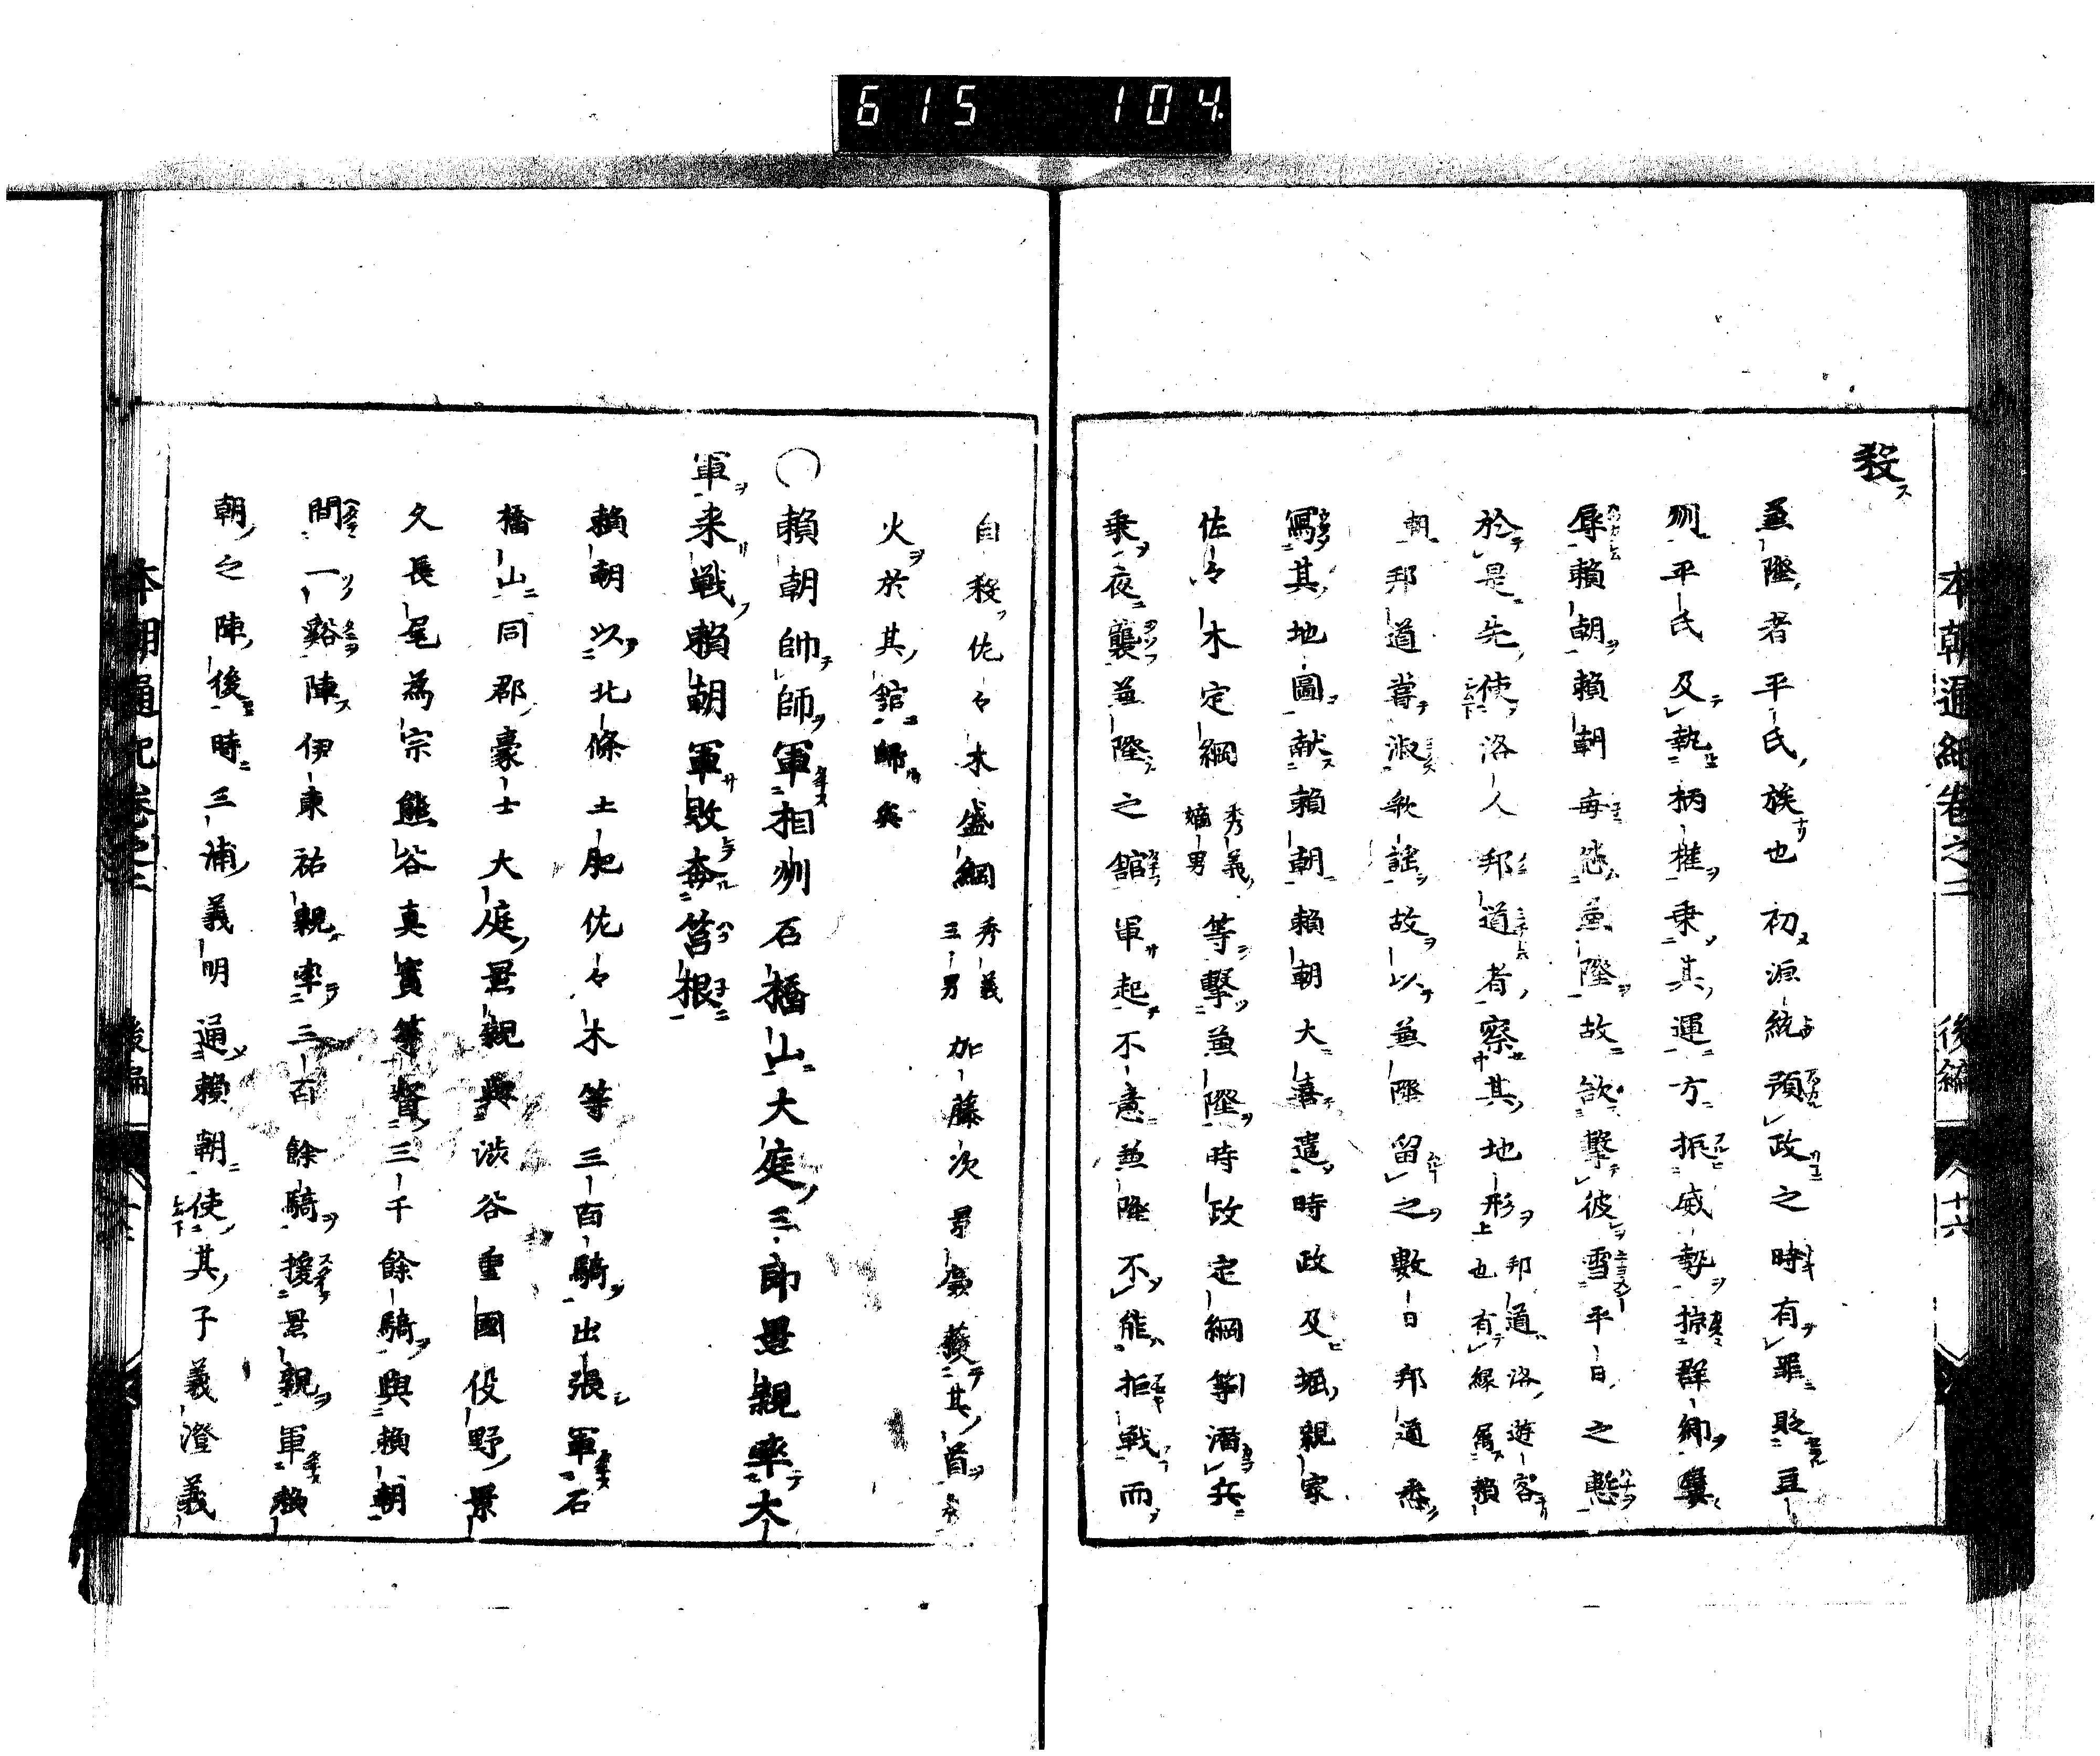 615 104
本朝通紀卷之二 後編 十六
殺ス
兼隆者平氏族也初源統預政之時有罪貶豆
州平氏及執柄權乘其運方振威勢掠群卿
辱賴朝賴朝每恚兼隆故欲擊彼雪平日之慙
於是先使洛人邦道者察其地形也 邦道洛遊客有緣屬賴
朝邦道嘗淑歌謠故以兼隆留之數日邦道悉
寫其地圖献賴朝賴朝大喜遣時政及堀親家
佐々木定綱 秀義嫡男 等擊兼隆時政定綱等潛兵
乘夜襲兼隆之舘軍起不意兼隆不能拒戰而
自殺佐々木盛綱 秀義三男 加藤次景廉其首
火於其舘歸
○賴朝帥師軍相州石橋山大庭三郎景親率大
軍来戦賴朝軍敗奔筥根
賴朝以北條土肥佐々木等三百騎出張軍石
橋山同郡豪士大庭景親與澁谷重國俣野景
久長尾為宗熊谷真實等督三千餘騎與賴朝
間一谿陣伊東祐親率三百餘騎援景親軍賴
朝之陣後時三浦義明通賴朝使其子義澄義
本朝通紀卷之二 後編